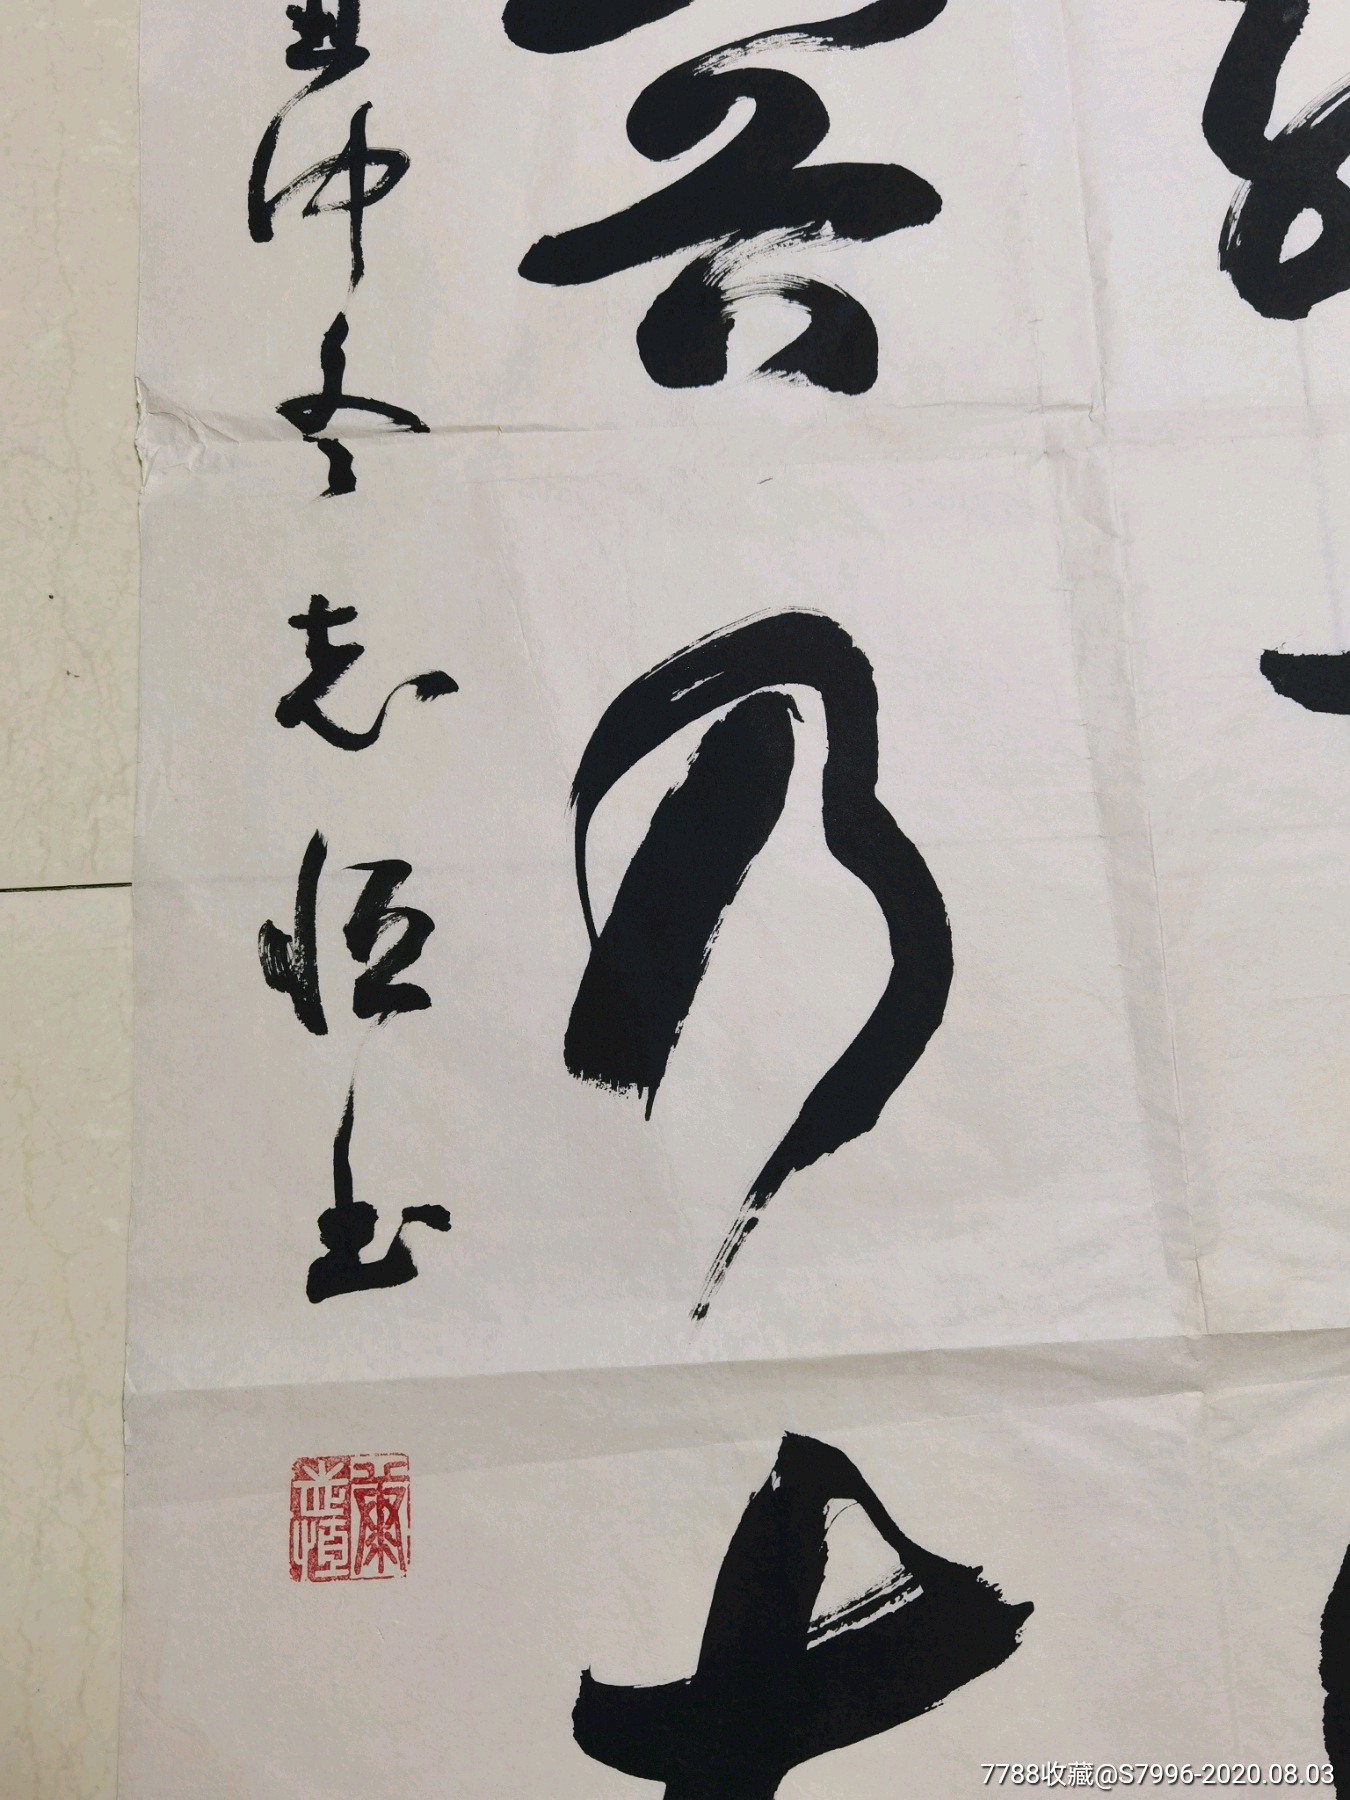 容乃大
丑仲冬志恒书
志恒
7788收藏@S7996-2020.08.03